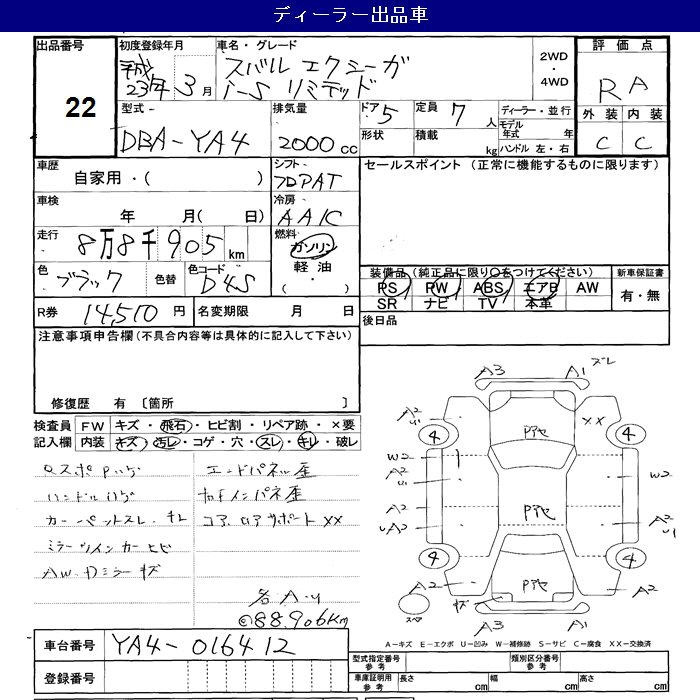 ディーラー出品車
出品番号 初度登録年月 車名・グレード 2WD・4WD 評価点
22
平成 23年 3月 スバル エクシーガ
i-S リミテッド
RA
型式 排気量 ドア 5 定員 7人 ディーラー・並行 外装 内装
DBA-YA4 2000cc 形状 積載 kg モデル年式 年 ハンドル 左・右 C C
車歴 シフト セールスポイント (正常に機能するものに限ります)
自家用・( ) フロアAT
車検 冷房
年 月( 日) AAIC
走行 燃料
8万8千905km ガソリン
軽油
・( )
色 色替 色コード
ブラック D4S
装備品(純正品に限り○をつけてください) 新車保証書
PS PW ABS エアB AW 有・無
SR ナビ TV 本革
R券 14,510円 名変期限 月 日 後日品
注意事項申告欄(不具合内容等は具体的に記入して下さい)
修復歴 有 〔箇所 〕
検査員 FW キズ・飛石・ヒビ割・リペア跡・×要
記入欄 内装 キズ・汚レ・コゲ・穴・スレ・キレ・破レ
エンドパネル歪
ハンドルハゲ
カーペットスレ・キレ コアロアサポート XX
ミラーウインカーヒビ
各A・U
@88906Km
A3 A1 ズレ
A2 XX
4 Pアセ 4
W2 W2
A2
Pアセ
A2 A2
4 4
A2 Pアセ A2
スペア
A3 A1
A-キズ E-エクボ U-凹み W-補修跡 S-サビ C-腐食 XX-交換済
車台番号 YA4-016412
登録番号
型式指定番号 参考 類別区分番号 参考
車庫証明用 参考 長さ cm 幅 cm 高さ cm